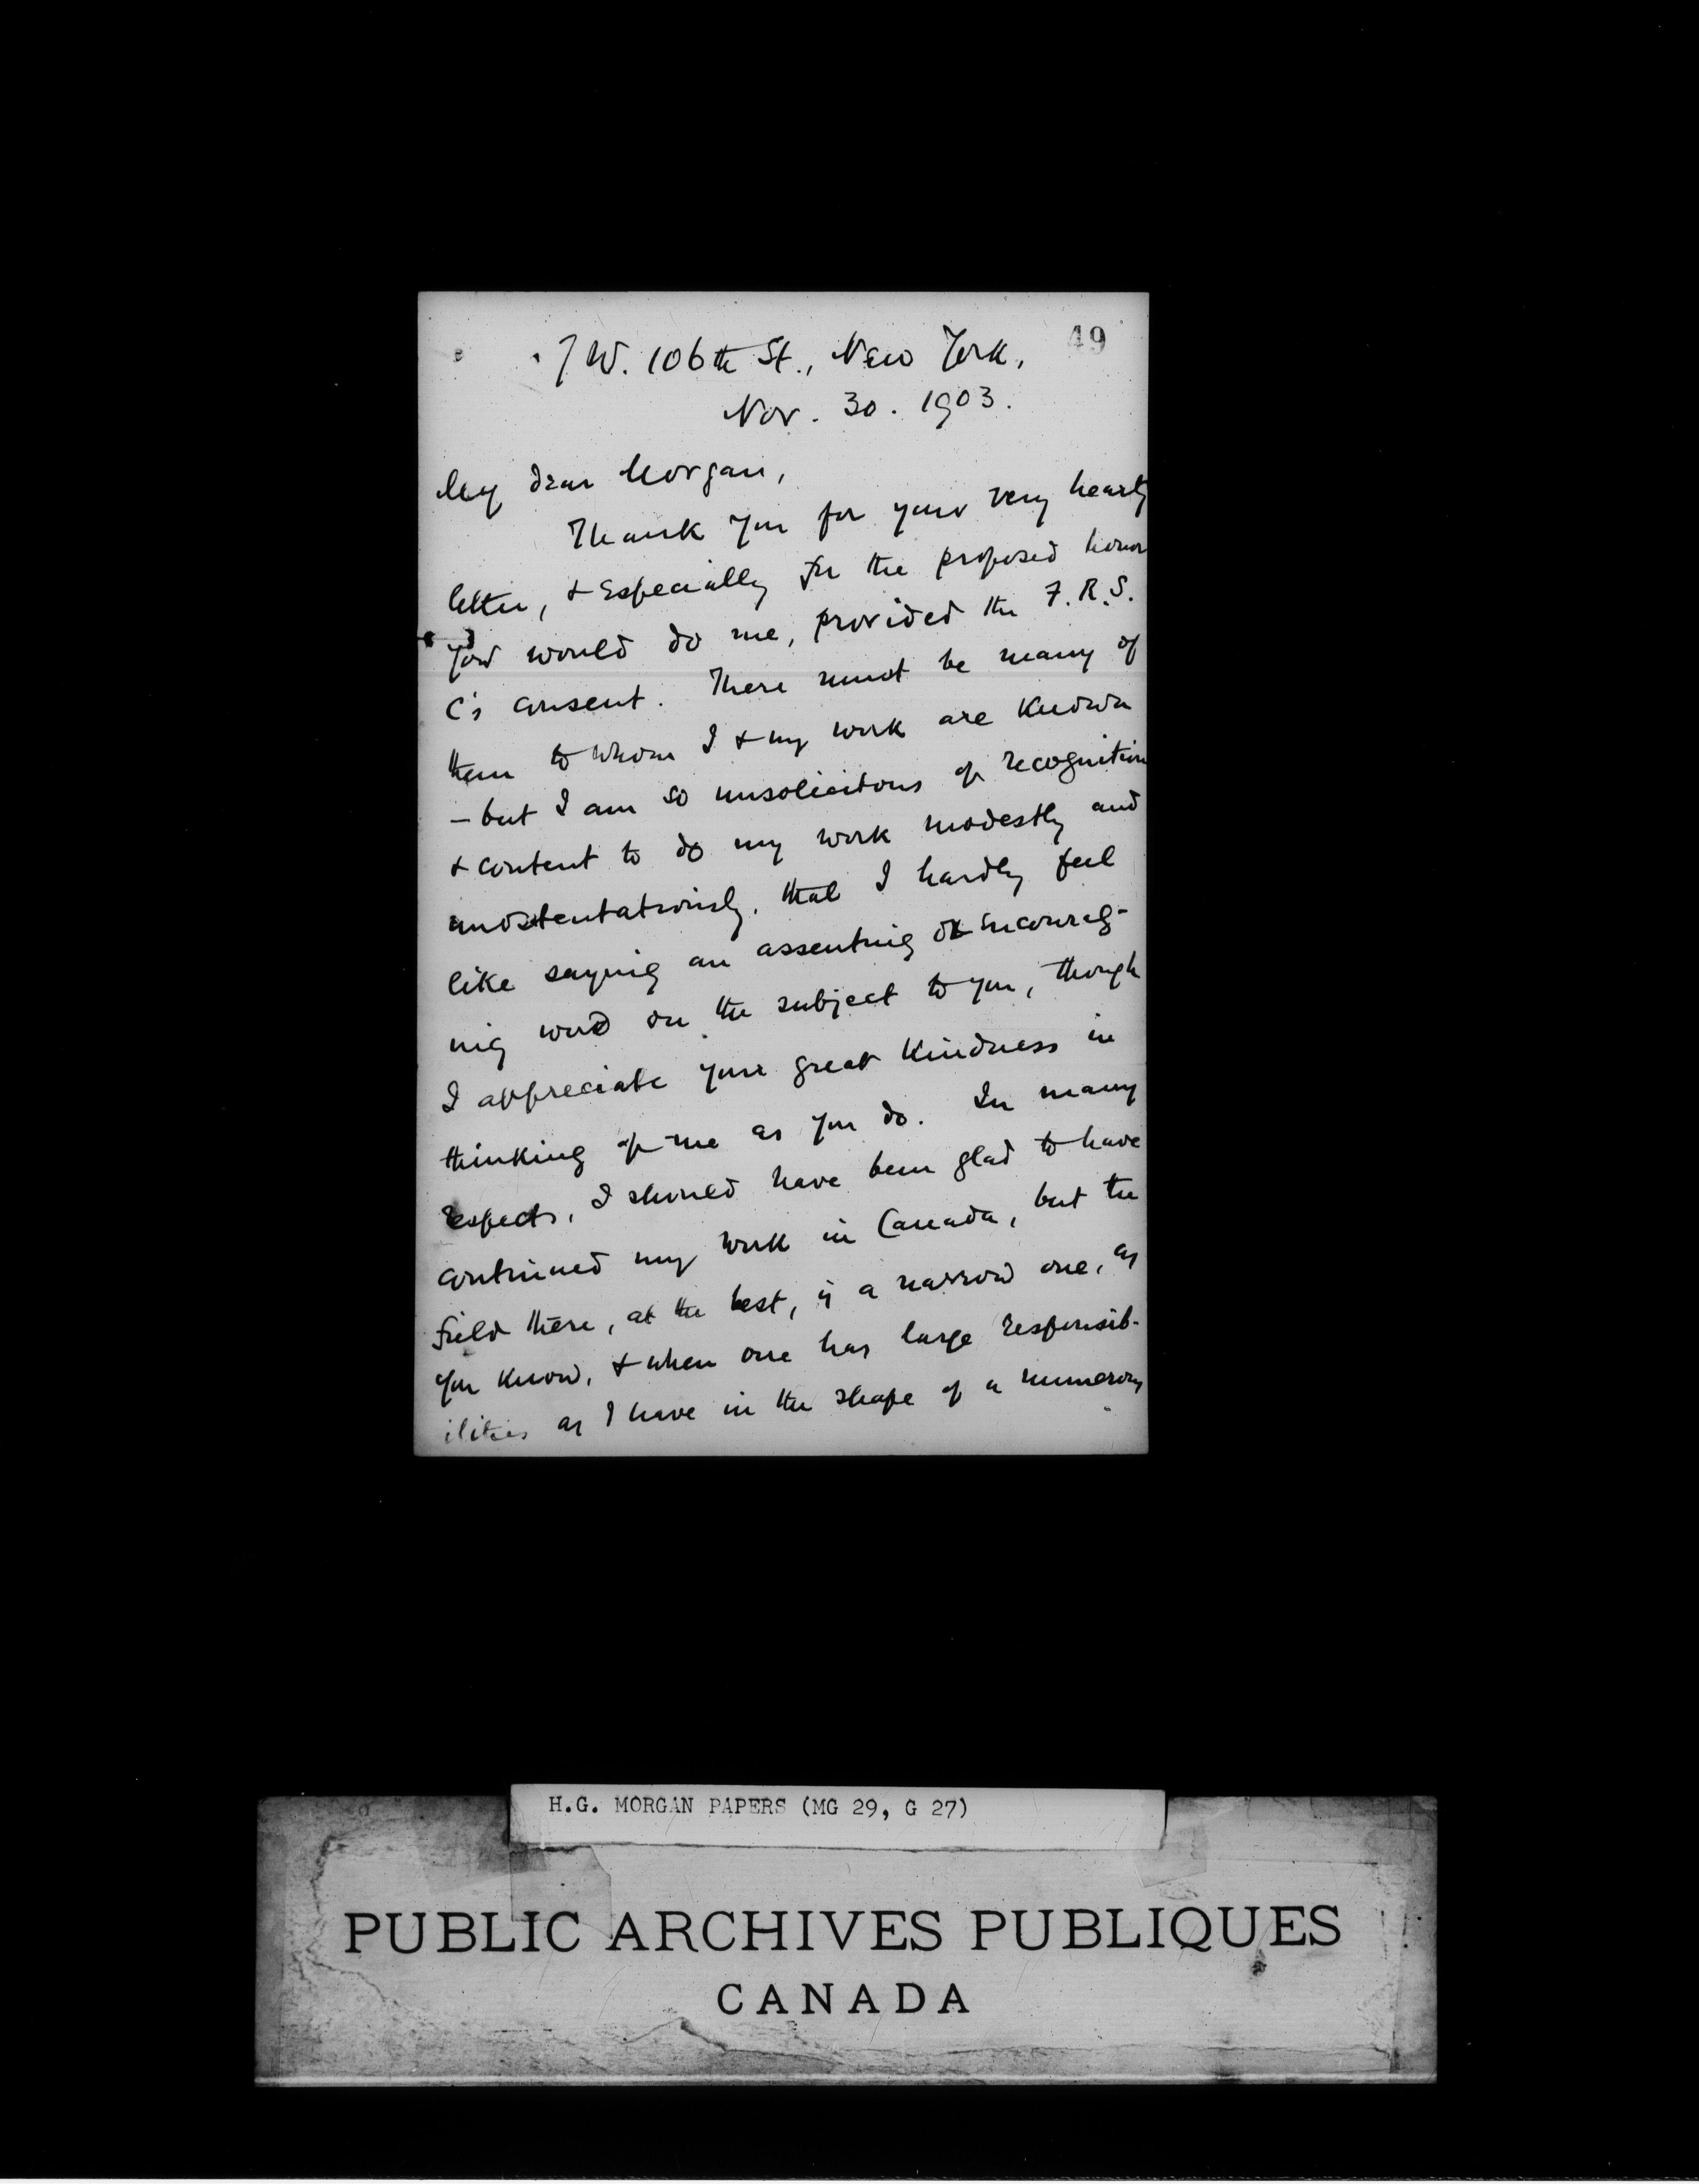 49
7 W. 106th St., New York,
Nov. 30. 1903.
My dear Morgan,
Thank you for your very hearty
letter, & especially for the proposed honor
you would do me, provided the F. R. S.
C's consent. There must be many of
them to whom I & my work are known
— but I am so unsolicitous of recognition
& content to do my work modestly and
unostentatiously, that I hardly feel
like saying an assenting or encourag-
ing word on the subject to you, though
I appreciate your great kindness in
thinking of me as you do. In many
respects, I should have been glad to have
continued my work in Canada, but the
field there, at the best, is a narrow one, as
you know, & when one has large responsib-
ilities as I have in the shape of a numerous
H.G. MORGAN PAPERS (MG 29, G 27)
PUBLIC ARCHIVES PUBLIQUES
CANADA